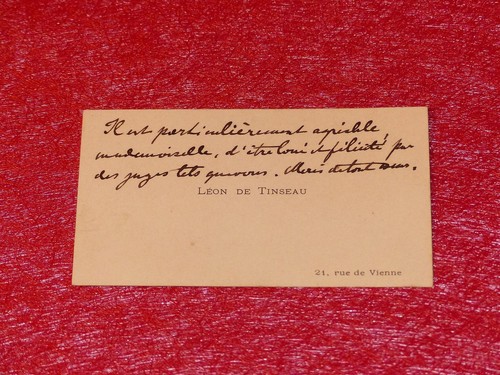 Il est particulièrement agréable,
mademoiselle, d'être loué et félicité par
des juges tels que vous. Merci de tout cœur.
LÉON DE TINSEAU
21, rue de Vienne